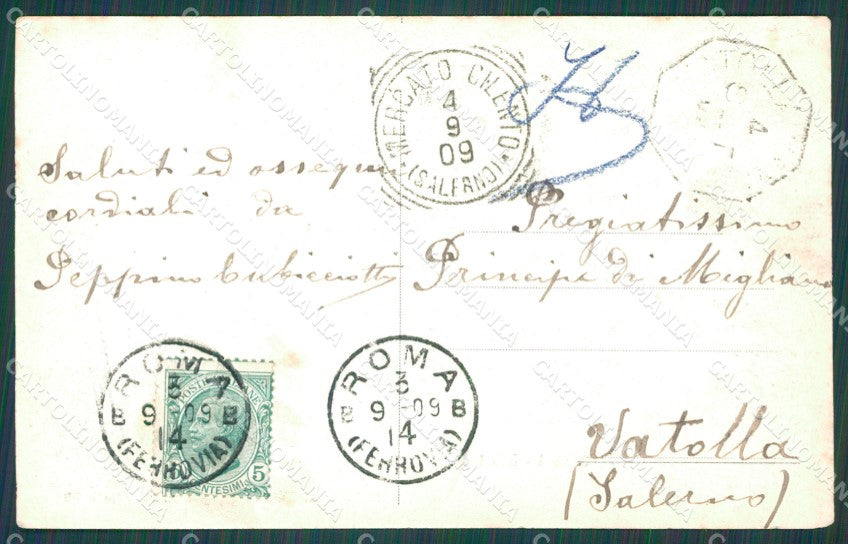 Saluti ed ossequi
cordiali da
Peppino Cubicciotti
MERCATO CILENTO
4
9
09
(SALERNO)
Pregiatissimo
Principe di Migliano
Vatolla
(Salerno)
ROMA
3 7
B 9 -09 B
14
(FERROVIA)
POSTE ITALIANE
5
CENTESIMI
ROMA
3
B 9 -09 B
14
(FERROVIA)
CARTOLINOMANIA